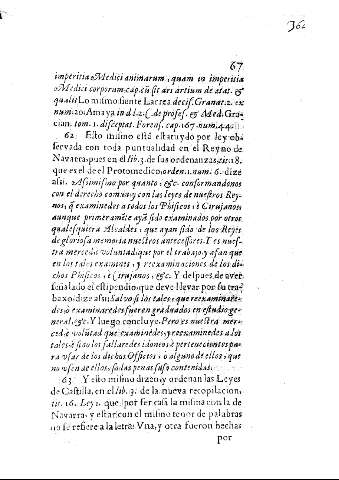 362
67
imperitia Medici animarum, quam in imperitia
Medici corporum. cap. cũ sit ars artium de ætat. &
qualit. Lo mismo siente Larrea decis. Granat. 2. ex
num. 20. Amaya in d. l. 2. C. de profes. & Med. Gra-
cian. tom. 1. disceptat. Forens. cap. 167. num. 44.
62. Esto mismo està estatuydo por ley obser-
vada con toda puntualidad en el Reyno de
Navarra, pues en el lib. 3. de sus ordenanzas, tit. 18.
que es el de el Protomedico, orden. 1. num. 6. dize
assi. Assimismo por quanto, &c. conformandonos
con el derecho comun, y con las leyes de nuestros Rey-
nos, q̃ examinedes a todos los Phisicos, è Cirujanos,
aunque primeramẽte ayã sido examinados por otros
qualesquiera Alcaldes, que ayan sido de los Reyes
de gloriosa memoria nuestros antecessores. I es nues-
tra merced, è voluntad que por el trabajo y afan que
en los tales examenes, y reexaminaciones de los di-
chos Phisicos, è Cirujanos, &c. Y despues de aver
señalado el estipendio que deve llevar por su tra-
baxo, dize assi. Salvo si los tales que reexaminare-
des, ò examinaredes fueren graduados en estudio ge-
neral, &c. Y luego concluye. Pero es nuestra mer-
ced, è volũtad que examinedes, y reexaminedes a los
tales, è si no los fallaredes idoneos è pertenecientes pa-
ra usar de los dichos Officios, ò alguno de ellos, que
no usen de ellos, so las penas suso contenidas.
63. Y esto mismo dizen y ordenan las Leyes
de Castilla, en el lib. 3. de la nueva recopilacion,
tit. 16. Ley 1. que por ser casi la misma con la de
Navarra, y estar con el mismo tenor de palabras
no se refiere a la letra. Vna, y otra fueron hechas
por